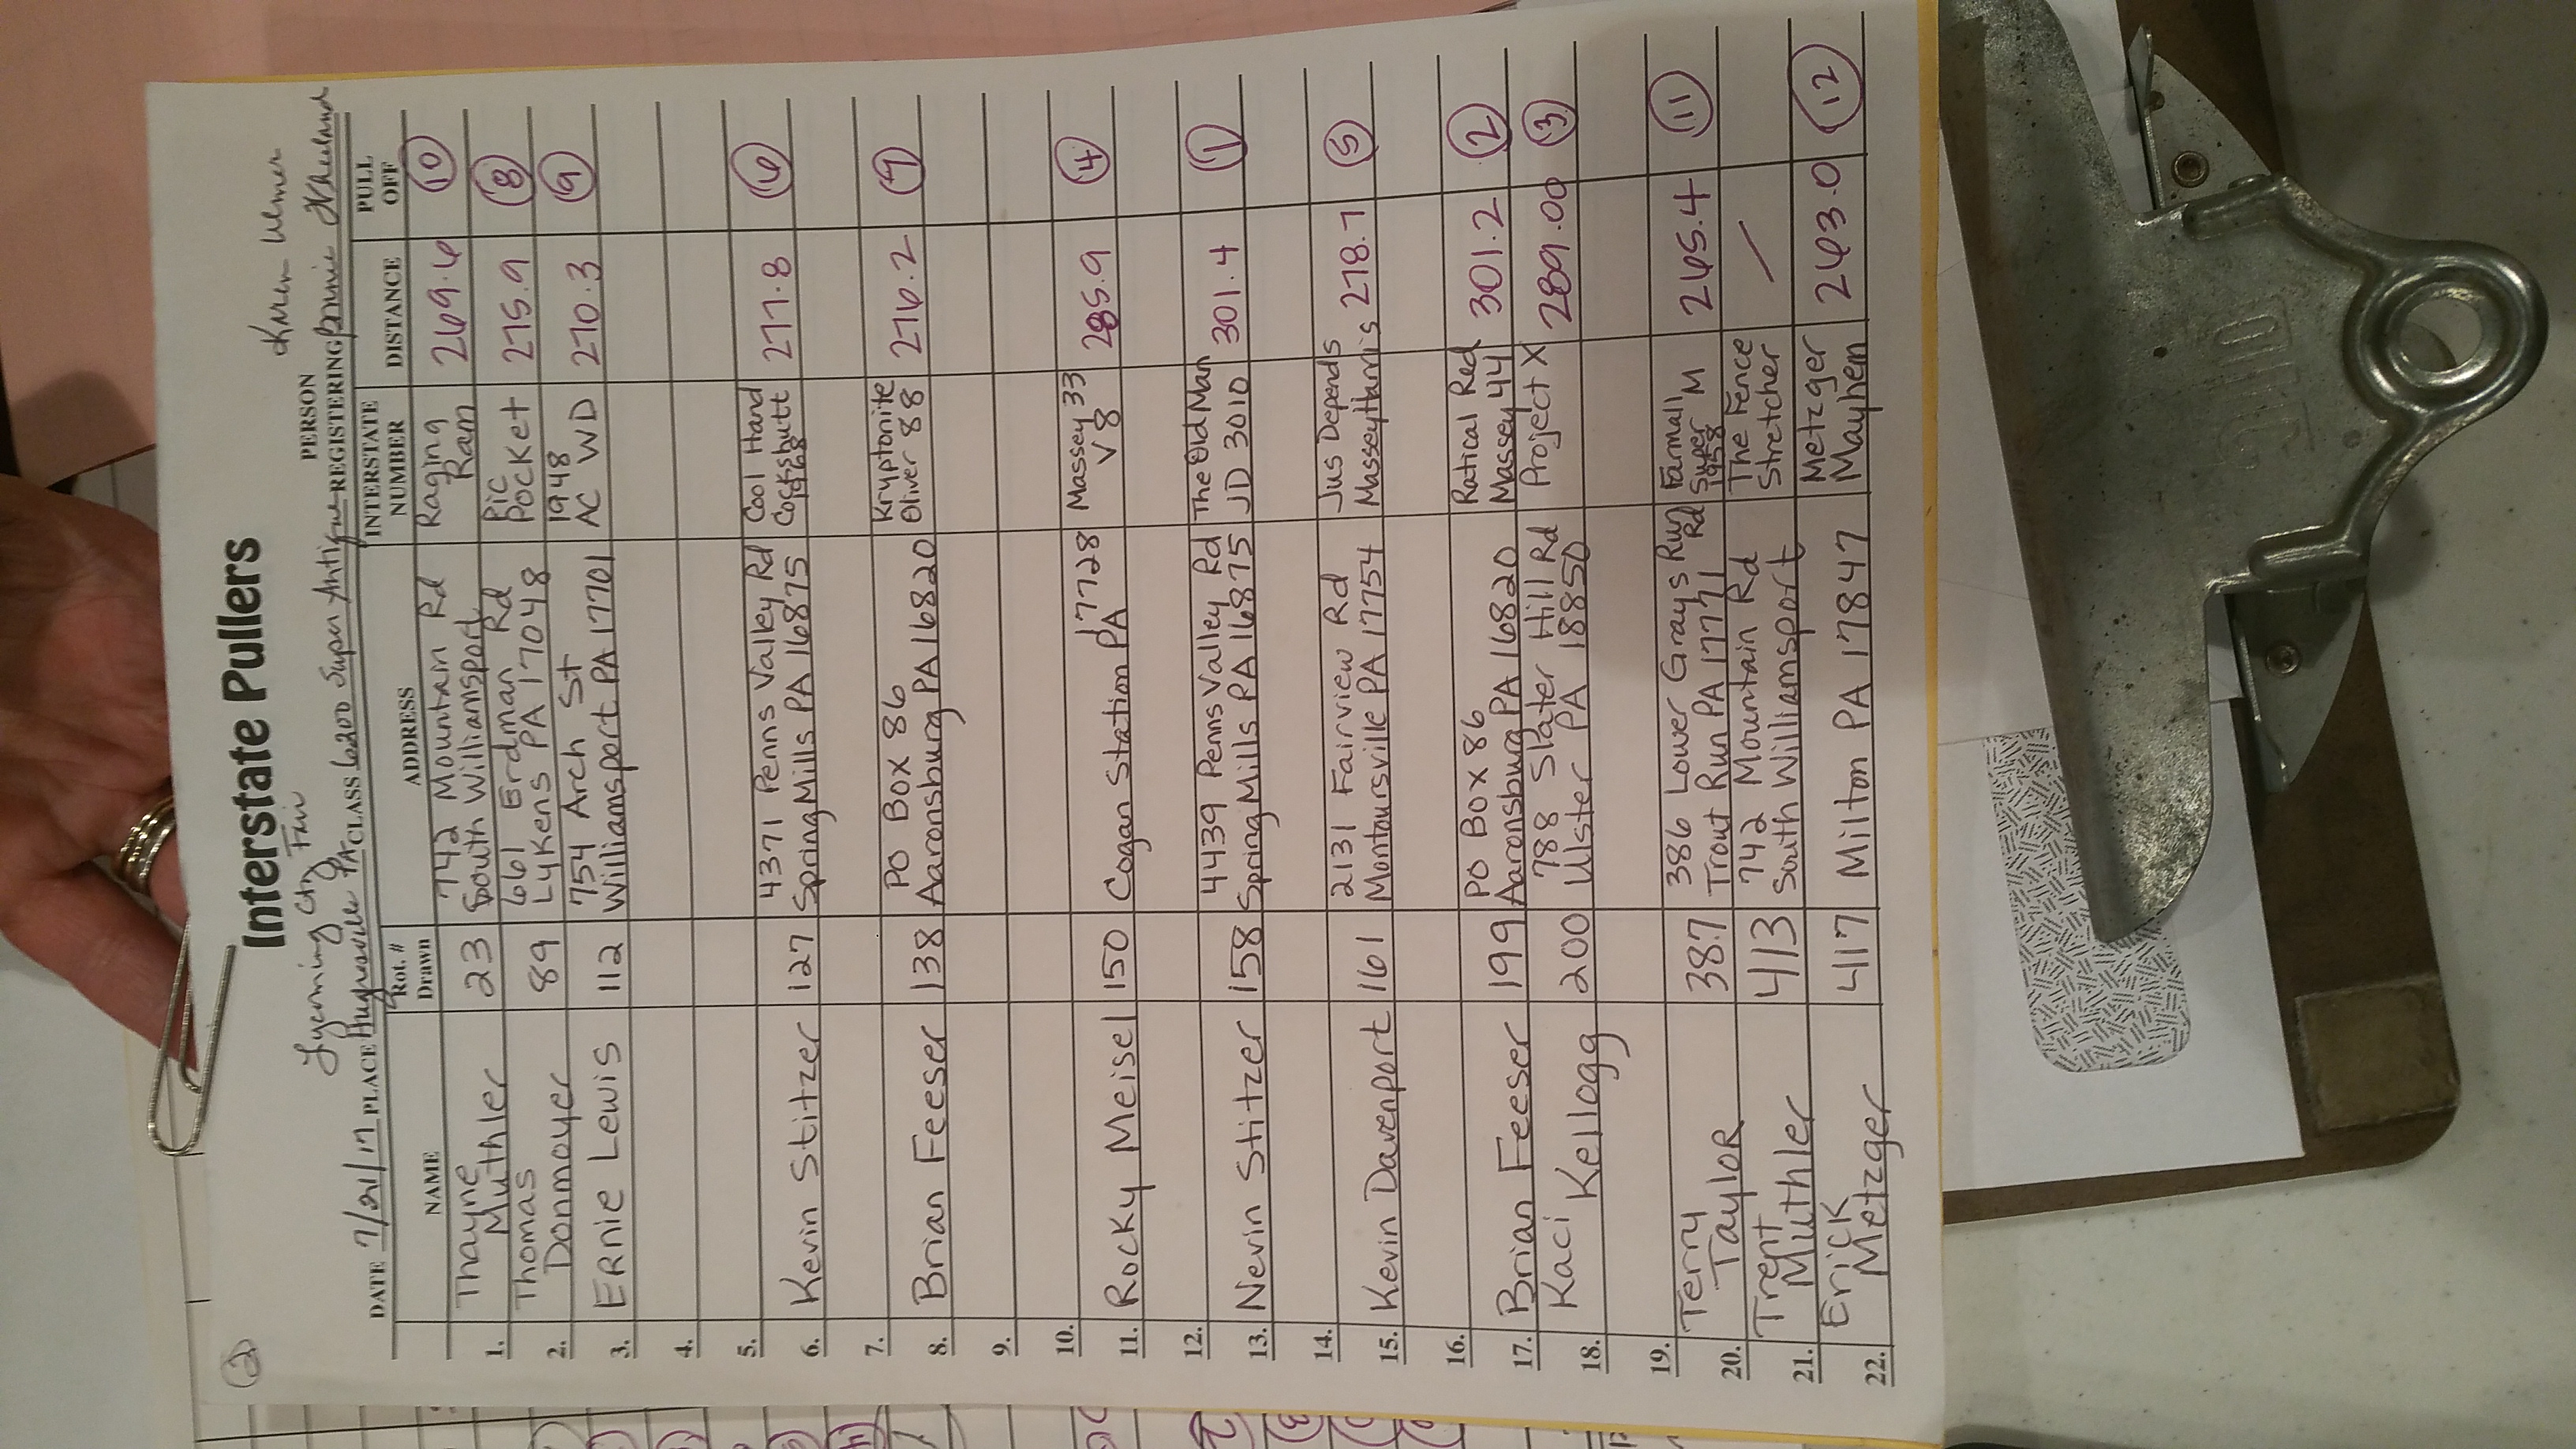 ②
Interstate Pullers
Karen Ulmer
Lycoming Cty Fair
DATE 7/21/17 PLACE Hughesville PA CLASS 6200 Super Antique PERSON REGISTERING Bonnie
NAME Rot. # Drawn ADDRESS INTERSTATE NUMBER DISTANCE PULL OFF
Thayne 742 Mountain Rd Raging
1. Muthler 23 South Williamsport Ram 269.6 ⑩
Thomas 661 Erdman Rd Pic
2. Donmoyer 89 Lykens PA 17048 Pocket 275.9 ⑧
754 Arch St 1948
3. Ernie Lewis 112 Williamsport PA 17701 AC WD 270.3 ⑨
4.
5.
4371 Penns Valley Rd Cool Hand
6. Kevin Stitzer 127 Spring Mills PA 16875 Cockshutt 277.8 ⑥
7.
PO Box 86 Kryptonite
8. Brian Feeser 138 Aaronsburg PA 16820 Oliver 88 276.2 ⑦
9.
10.
17728 Massey 33
11. Rocky Meisel 150 Cogan Station PA V8 285.9 ④
12.
4439 Penns Valley Rd The Old Man
13. Nevin Stitzer 158 Spring Mills PA 16875 JD 3010 301.4 ①
14.
2131 Fairview Rd Jus Depends
15. Kevin Davenport 161 Montoursville PA 17754 Massey Harris 278.7 ⑤
16.
PO Box 86 Ratical Red
17. Brian Feeser 199 Aaronsburg PA 16820 Massey 44 301.2 ②
Kaci 788 Slater Hill Rd
18. Kellogg 200 Ulster PA 18850 Project X 289.00 ③
19.
Terry 386 Lower Grays Run Rd Farmall
20. Taylor 387 Trout Run PA 17771 Super M 1958 265.4 ⑪
Trent 742 Mountain Rd The Fence
21. Muthler 413 South Williamsport Stretcher /
Erick Metzger
22. Metzger 417 Milton PA 17847 Mayhem 263.0 ⑫